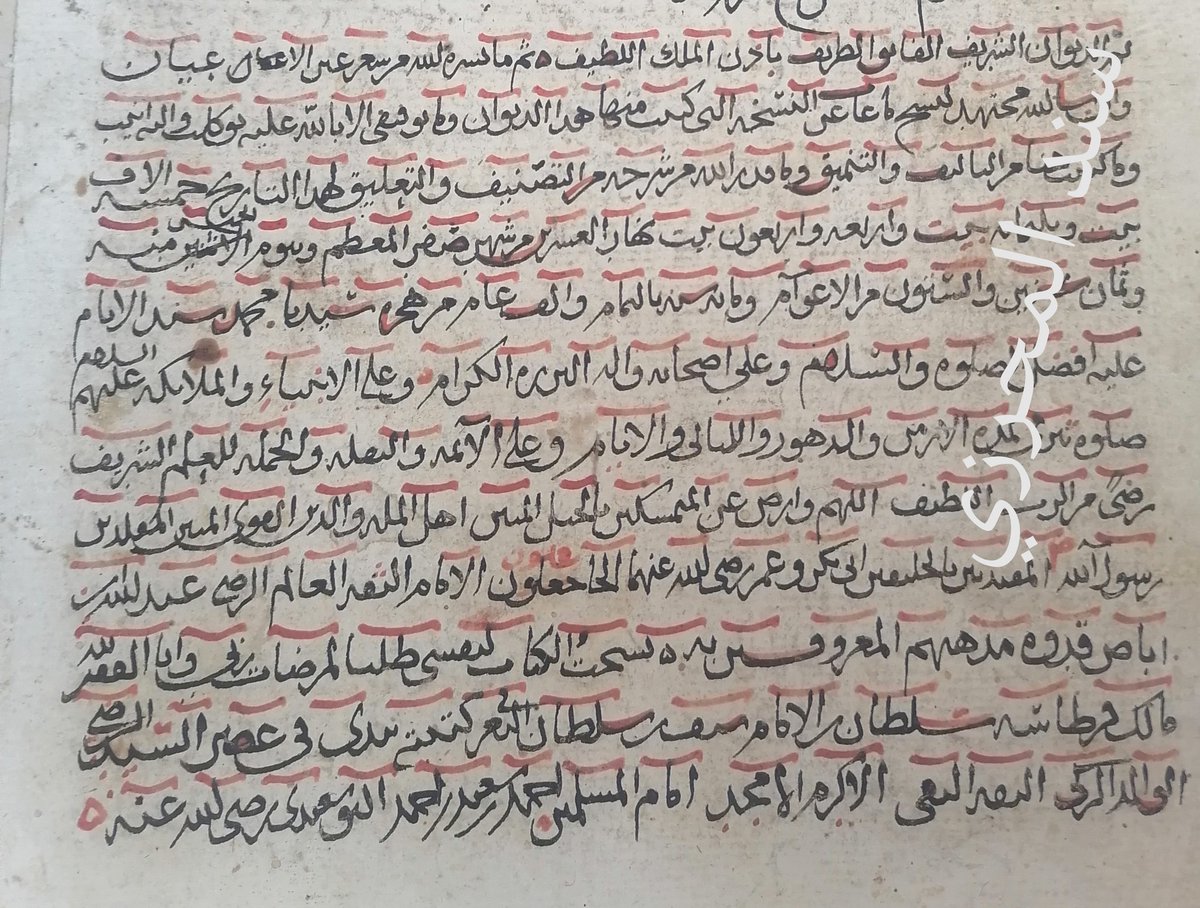 الديوان الشريف الفائق الظريف باذن الملك اللطيف ثم ما يسره الله من شعر عين الاعمى
والله مجتهد لنسخ عن النسخة التي كتبت منها هذا الديوان وما توفيقي الا بالله عليه توكلت واليه انيب
وما كتبت من التاليف والتنميق وما قدر الله من شرحه من التصنيف والتعليق لهذا التاريخ خمسة الاف
بيت وثلثمائة بيت واربعة واربعون بيت نهار العشرين من شهر المعظم ويوم الاثنين منه
وثمان سنين والستون من الاعوام ومائة سنة بالتمام والف عام من هجرة سيدنا محمد سيد الانام
عليه افضل صلوة والسلام وعلى اصحابه واله البررة الكرام وعلى الانبياء والملائكة عليهم السلام
صلوة الازمن والدهور والليالي والايام وعلى الآئمة والنقلة والحملة للعلم الشريف
رضى من الرب اللطيف اللهم وارض عن المتمسكين بالحبل المتين اهل الملة والدين القوي المبين المقلدين
رسول الله المقتدين بالخليفين ابي بكر وعمر رضي الله عنهما الامام الثقة العالم الرضي عبد الله بن
اباض قدوة مذهبهم المعروفين به نسخت الكتاب لنفسي طلبا لمرضات ربي وانا الفقير لله
مالك قرطاسه سلطان بن الامام سيف بن سلطان اليعربي كتبته بيدي في عصر السيد الرضي
الولد الزكي الثقة التقي الاكرم الامجد امام المسلمين احمد بن سعيد بن احمد البوسعيدي رضي الله عنه
سند المحرزي